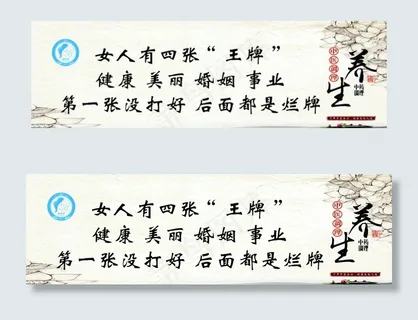 女人有四张“王牌”
健康 美丽 婚姻 事业
第一张没打好 后面都是烂牌
中医调理
养生
女人有四张“王牌”
健康 美丽 婚姻 事业
第一张没打好 后面都是烂牌
中医调理
养生